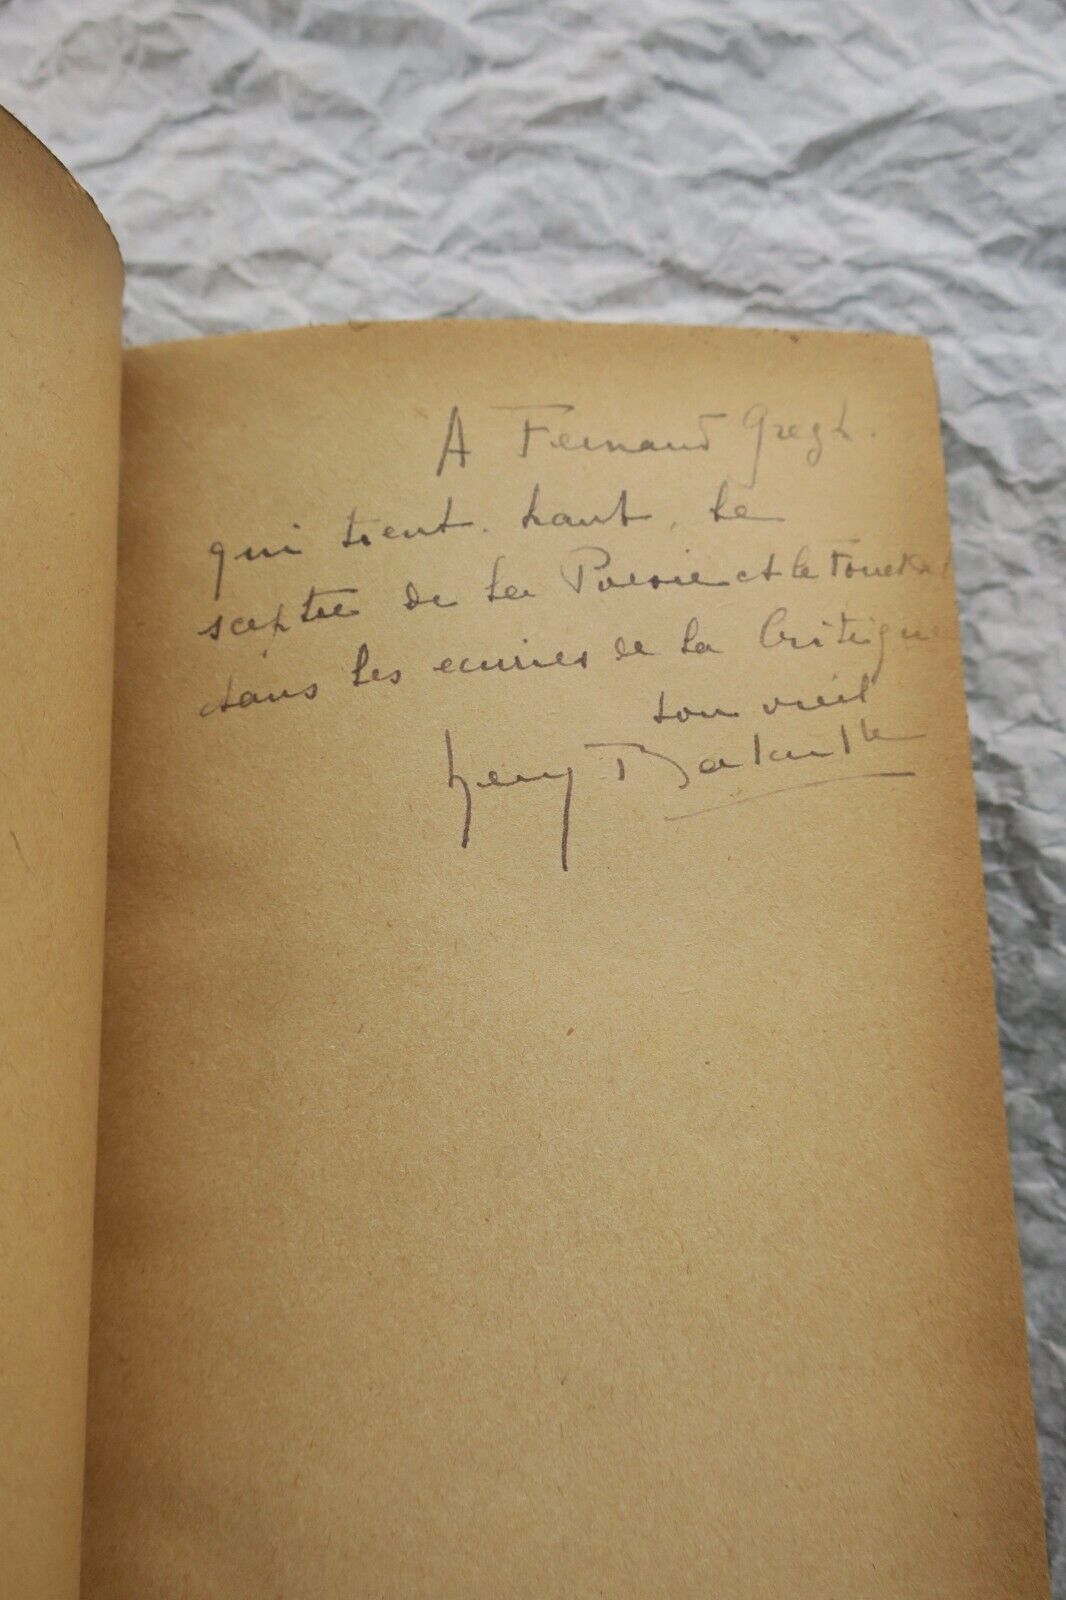 A Fernand Gregh.
qui tient haut le
sceptre de la Poesie et le Fouet
dans les ecuries de la Critique
son vieil
henry